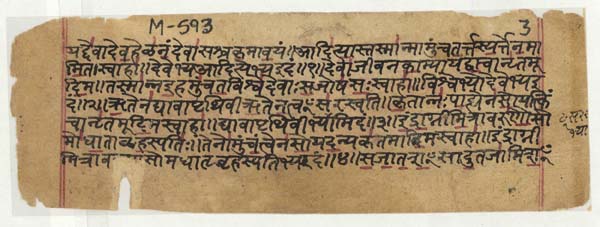 M-593 3
यद्देवादेवहेळनंदेवासश्चकृमावयं॥आदित्यास्तस्मान्मामुंचतर्त्तस्यर्त्तेनमा
मितस्वाहा॥देवेभ्यआदित्येभ्यइदं॥१॥देवाजीवनकाम्यायद्वाचानृतमू
दिम॥तस्मान्नइहमुंचतविश्वेदेवाःसजोषसःस्वाहा॥विश्वेभ्योदेवेभ्यइ
दं॥२॥ऋतेनद्यावापृथिवीऋतेनत्वंसरस्वति॥कृतान्नःपाह्येनसोयत्किं
चानृतमूदिमस्वाहा॥द्यावापृथिवीभ्यामिदं॥३॥इंद्राग्नीमित्रावरुणौसो
मोधाताबृहस्पतिः॥तेनोमुंचत्वेनसोयदन्यकृतमारिमस्वाहा॥इंद्राग्नी
मित्राव सोमधातृबृहस्पतिभ्यइदं॥४॥सजातशंसादुतजामिशं